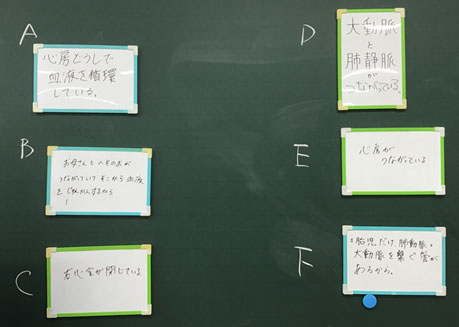 A
心房どうしで
血液を循環
している。
B
お母さんとへその緒が
つながっていてそこから血液
を
するから
C
右心室が閉じている
D
大動脈
と
肺静脈
が
つながっている。
E
心房が
つながっている
F
・胎児だけ、肺動脈・
大動脈を繋ぐ管が
あるから。